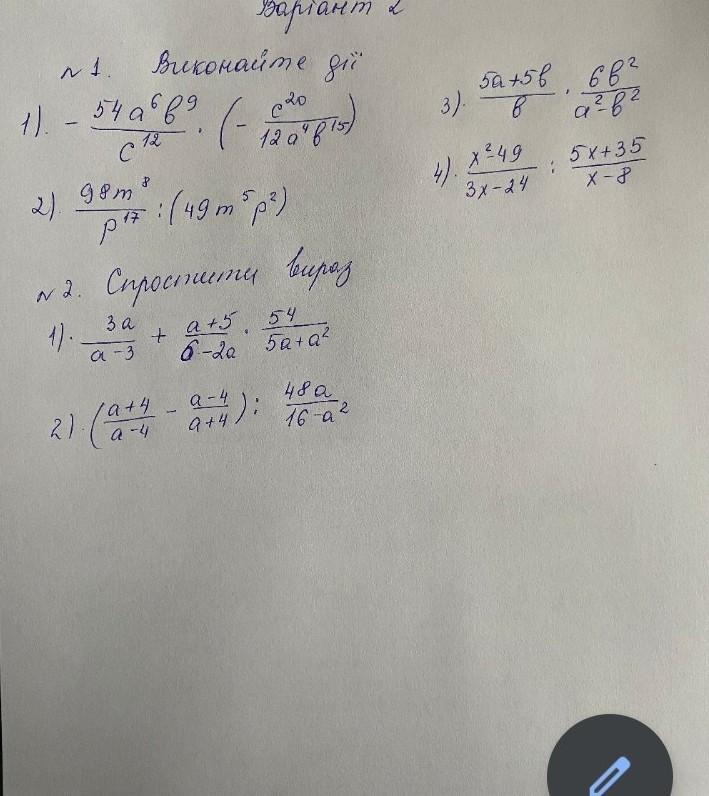 Варіант 2
№1. Виконайте дії
1). - 54a⁶b⁹/c¹² · (- c²⁰/12a⁴b¹⁵)
2). 98m⁸/p¹⁷ : (49m⁵p²)
3). 5a+5b/b · 6b²/a²-b²
4). x²-49/3x-24 : 5x+35/x-8
№2. Спростити вираз
1). 3a/a-3 + a+5/6-2a · 54/5a+a²
2). (a+4/a-4 - a-4/a+4) : 48a/16-a²